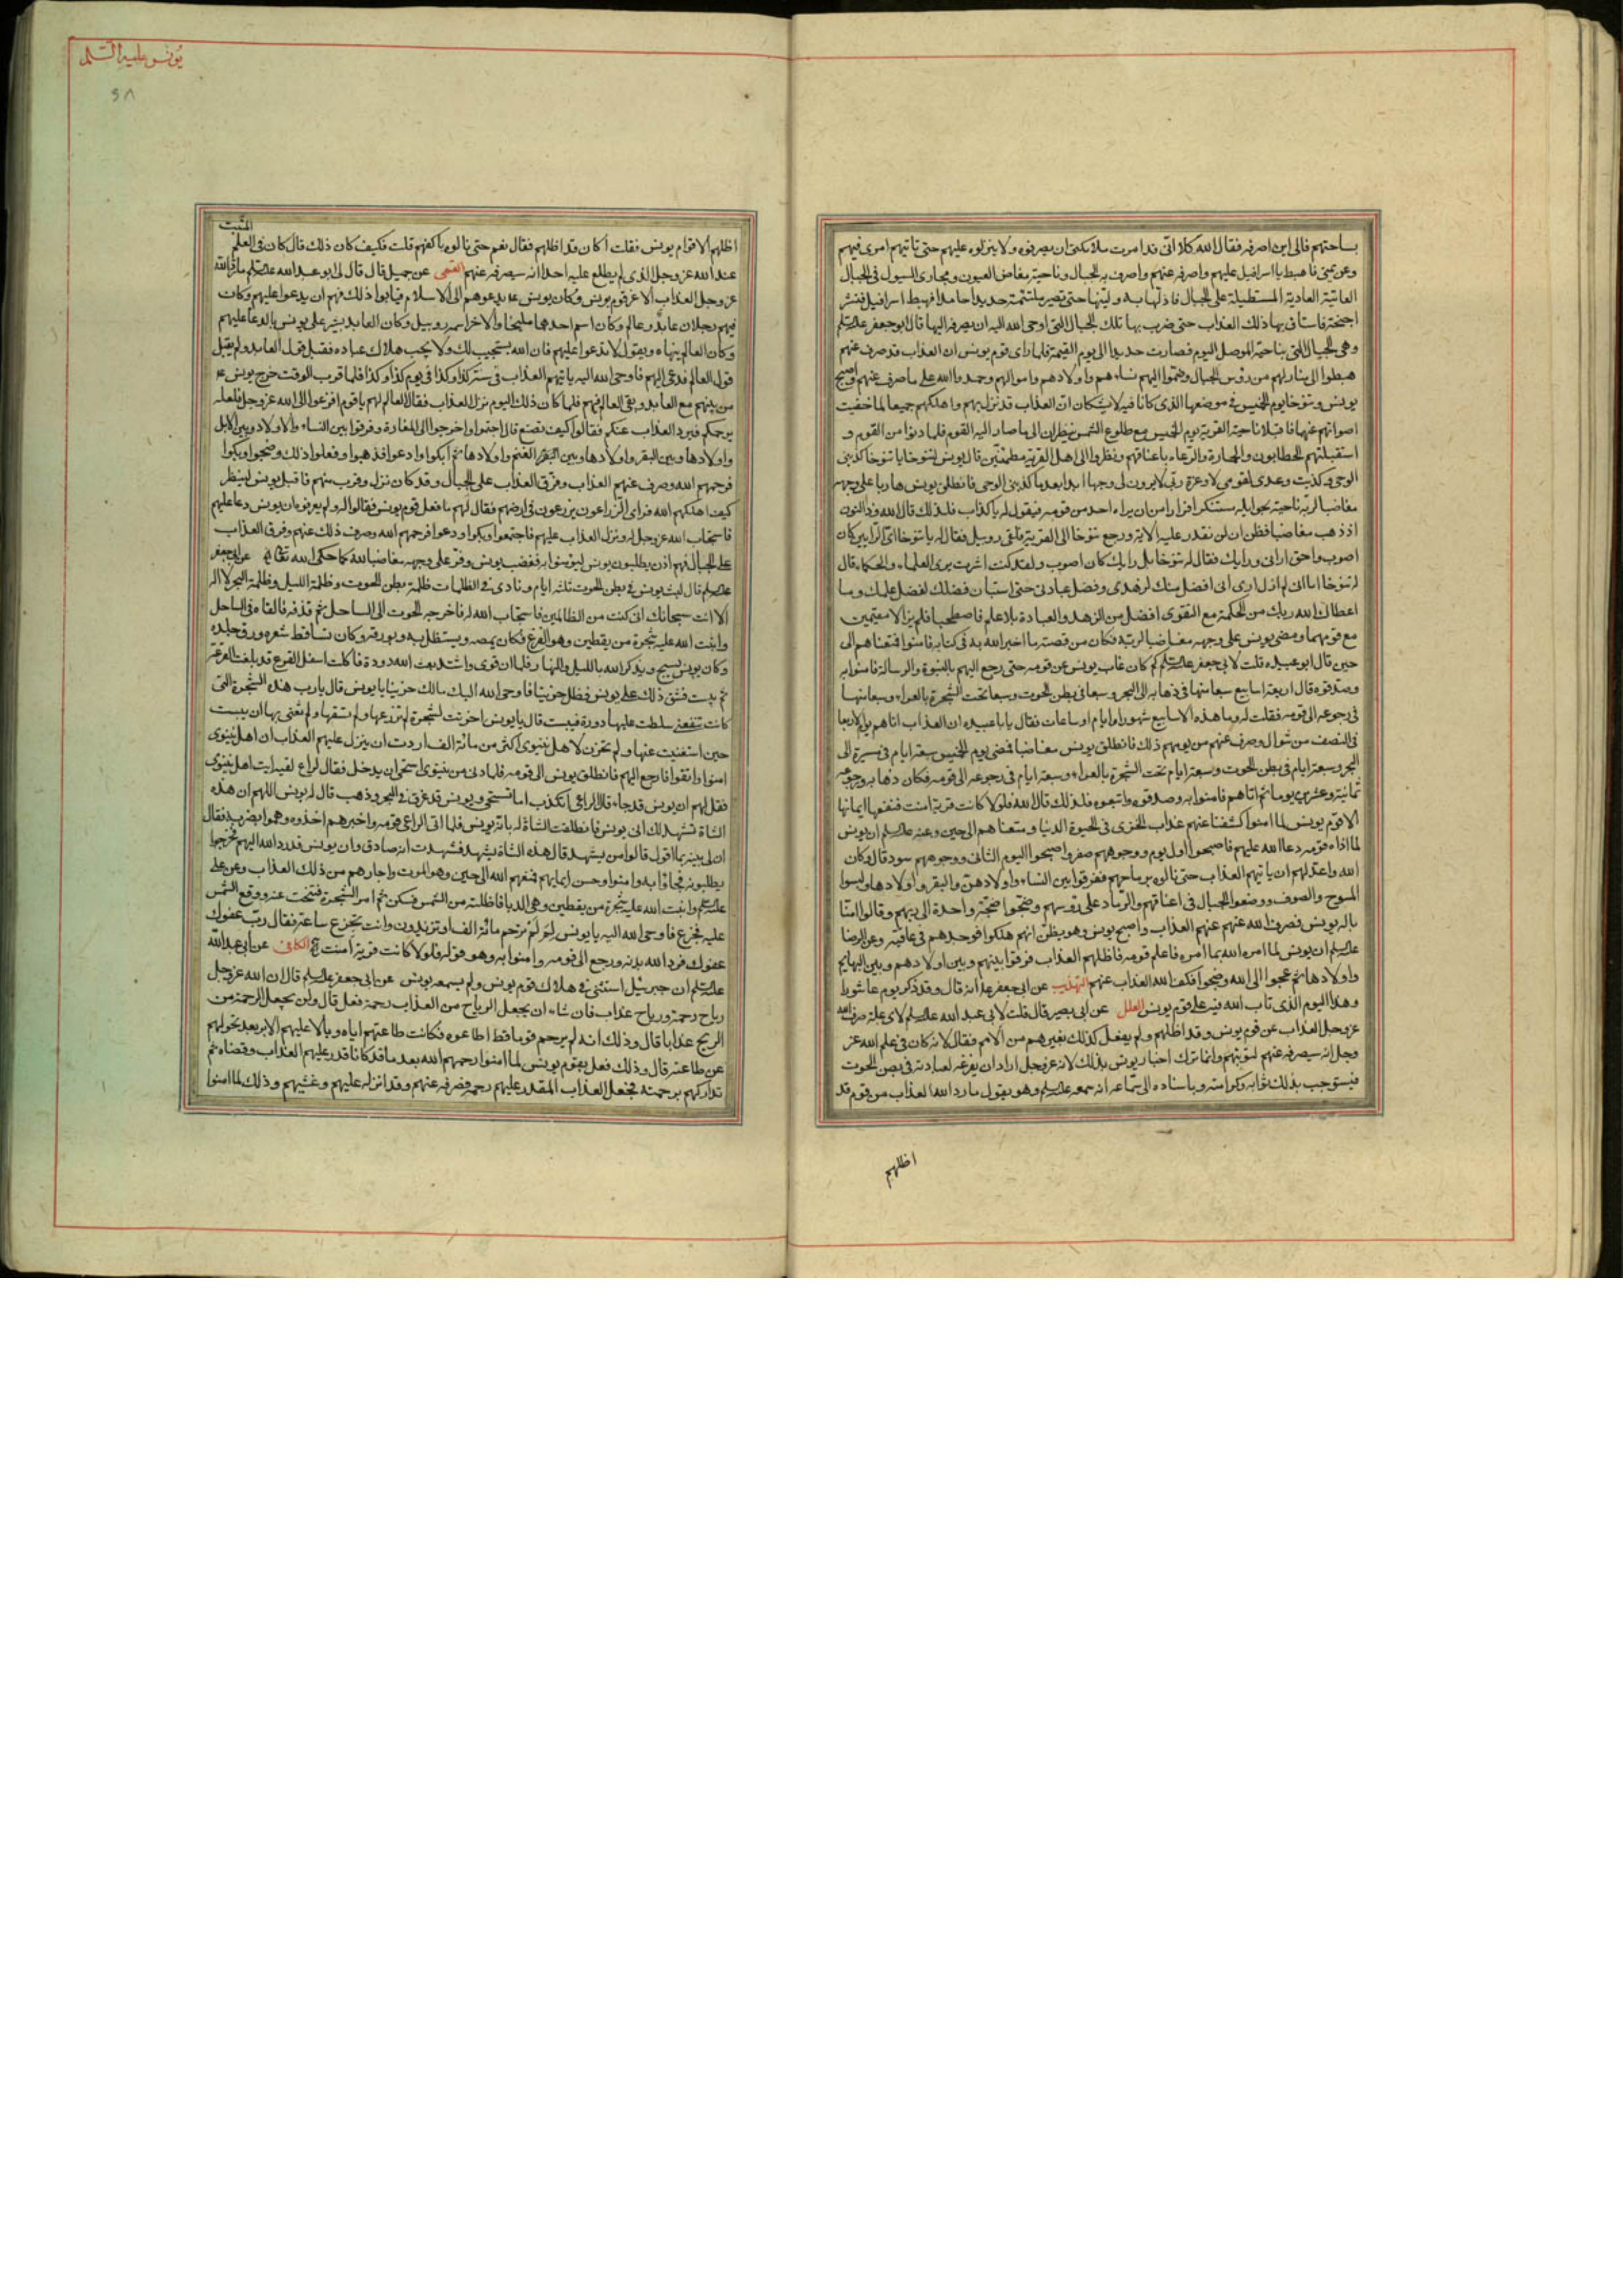 بساحتهم فالى اين اصرفه فقال الله كلا انى قد امرت ملائكتى ان يصرفوه ولا ينزلوه عليهم حتى تاتيهم امرى فيهم
وعزيمتى فاهبط يا اسرافيل عليهم واصرفه عنهم واصرف به الجبال وناحية مفاض العيون ومجارى السيول فى الجبال
العاتية العادية المستطيلة على الجبال فاذلها به ولينها حتى تصير ملتئمة حديدا جامدا فهبط اسرافيل فنشر
اجنحته فاستاق بها ذلك العذاب حتى ضرب بها تلك الجبال التى اوحى الله اليه ان يصرفه اليها قال ابو جعفر
وهى الجبال التى بناحية الموصل اليوم فصارت حديدا الى يوم القيمة فلما راى قوم يونس ان العذاب قد صرف عنهم
هبطوا الى منازلهم من رؤس الجبال وضموا اليهم نساءهم واولادهم واموالهم وحمدوا الله على ما صرف عنهم واصبح
يونس وتنوخا يوم الخميس فى موضعها الذى كانا فيه لا يشكان ان العذاب قد نزل بهم واهلكهم جميعا لما خفيت
اصواتهم عنهما فاقبلا ناحية القرية يوم الخميس مع طلوع الشمس ينظران الى ما صار اليه القوم فلما دنوا من القوم و
استقبلتهم الحطابون والحمارة والرعاة باعناقهم ونظروا الى اهل القرية مطمئنين قال يونس لتنوخا يا تنوخا كذبنى
الوحى وكذبت وعدى لقومى لا وعزة ربى لا يرون لى وجها ابدا بعد ما كذبنى الوحى فانطلق يونس هاربا على وجهه
مغاضبا لربه ناحية بحر ايله مستنكرا فرارا من ان يراه احد من قومه فيقول له يا كذاب فلذلك قال الله وذا النون
اذ ذهب مغاضبا فظن ان لن نقدر عليه الاية ورجع تنوخا الى القرية فلقى روبيل فقال له يا تنوخا اى الرايين كان
اصوب واحق ارائى ورايك فقال له تنوخا بل رايك كان اصوب ولقد كنت اشرت براى العلماء والحكماء قال
له تنوخا اما انى لم ازل ارى انى افضل منك لزهدى وفضل عبادتى حتى استبان فضلك لفضل علمك وما
اعطاك الله ربك من الحكمة مع التقوى افضل من الزهد والعبادة بلا علم فاصطحبا فلم يزالا مقيمين
مع قومهما ومضى يونس على وجهه مغاضبا لربه فكان من قصته ما اخبر الله به فى كتابه فامنوا فمتعناهم الى
حين قال ابو عبيده قلت لابى جعفر كم كان غاب يونس عن قومه حتى رجع اليهم بالنبوة والرسالة فامنوا به
وصدقوه قال اربعة اسابيع سبعا منها فى ذهابه الى البحر وسبعا فى بطن الحوت وسبعا تحت الشجرة بالعراء وسبعا منها
فى رجوعه الى قومه فقلت له وما هذه الاسابيع شهورا وايام او ساعات فقال يا با عبيده ان العذاب اتاهم يوم الاربعا
فى النصف من شوال وصرف عنهم من يومهم ذلك فانطلق يونس مغاضبا فمضى يوم الخميس سبعة ايام فى مسيره الى
البحر وسبعة ايام فى بطن الحوت وسبعة ايام تحت الشجرة بالعراء وسبعة ايام فى رجوعه الى قومه فكان ذهابه ورجوعه
ثمانية وعشرين يوما ثم اتاهم فامنوا به وصدقوه واتبعوه فلذلك قال الله فلولا كانت قرية امنت فنفعها ايمانها
الا قوم يونس لما امنوا كشفنا عنهم عذاب الخزى فى الحيوة الدنيا ومتعناهم الى حين وعنه ان يونس
لما اذاه قومه دعا الله عليهم فاصبحوا اول يوم ووجوههم صفر واصبحوا اليوم الثانى ووجوههم سود قال وكان
الله واعدلهم ان ياتيهم العذاب حتى نالوه برماحهم ففرقوا بين النساء واولادهن والبقر واولادها ولبسوا
المسوح والصوف ووضعوا الحبال فى اعناقهم والرماد على رؤسهم وضجوا ضجة واحدة الى ربهم وقالوا امنا
باله يونس فصرف الله عنهم العذاب واصبح يونس وهو يظن انهم هلكوا فوجدهم فى عافية وعن الرضا
ان يونس لما امره الله بما امره فاعلم قومه فاظلهم العذاب ففرقوا بينهم وبين اولادهم وبين البهايم
واولادها ثم عجوا الى الله وضجوا فكف الله العذاب عنهم التهذيب عن ابى جعفر انه قال وقد ذكر يوم عاشورا
وهذا اليوم الذى تاب الله فيه على قوم يونس العلل عن ابى بصير قال قلت لابى عبد الله لاى علة صرف الله
عز وجل العذاب عن قوم يونس وقد اظلهم ولم يفعل كذلك بغيرهم من الامم فقال لانه كان فى علم الله عز
وجل انه سيصرفه عنهم لتوبتهم وانما ترك اخبار يونس بذلك لانه عز وجل اراد ان يفرغه لعبادته فى بطن الحوت
فيستوجب بذلك ثوابه وكرامته وباسناده الى سماعه انه سمعه وهو يقول ما رد الله العذاب من قوم قد
اظلهم
يونس عليه السلم
اظلهم الا قوم يونس فقلت أكان قد اظلهم فقال نعم حتى نالوه باكفهم قلت فكيف كان ذلك قال كان فى العلم
المثبت
عند الله عز وجل الذى لم يطلع عليه احدا انه سيصرفه عنهم القمى عن جميل قال قال لى ابو عبد الله ما رد الله
عز وجل العذاب الا عن قوم يونس وكان يونس يدعوهم الى الاسلام فيابوا ذلك فهم ان يدعوا عليهم وكان
فيهم رجلان عابد وعالم وكان اسم احدهما مليخا والاخر اسمه روبيل وكان العابد يشير على يونس بالدعا عليهم
وكان العالم ينهاه ويقول لا تدعوا عليهم فان الله يستجيب لك ولا يحب هلاك عباده فقبل قول العابد ولم يقبل
قول العالم فدعى عليهم فاوحى الله اليه ياتيهم العذاب فى سنة كذا وكذا فى يوم كذا وكذا فلما قرب الوقت خرج يونس
من بينهم مع العابد وبقى العالم فيهم فلما كان ذلك اليوم نزل العذاب فقال العالم لهم يا قوم افزعوا الى الله عز وجل فلعله
يرحمكم فيرد العذاب عنكم فقالوا كيف نصنع قال اجتمعوا واخرجوا الى المفازة وفرقوا بين النساء والاولاد وبين الابل
واولادها وبين البقر واولادها وبين الغنم واولادها ثم ابكوا وادعوا فذهبوا وفعلوا ذلك وضجوا وبكوا
فرحمهم الله وصرف عنهم العذاب وفرق العذاب على الجبال وقد كان نزل وقرب منهم فاقبل يونس لينظر
كيف اهلكهم الله فراى الزراعون يزرعون فى ارضهم فقال لهم ما فعل قوم يونس فقالوا له ولم يعرفوه ان يونس دعا عليهم
فاستجاب الله عز وجل له ونزل العذاب عليهم فاجتمعوا وبكوا ودعوا فرحمهم الله وصرف ذلك عنهم وفرق العذاب
على الجبال فهم اذن يطلبون يونس ليؤمنوا به فغضب يونس ومر على وجهه مغاضبا لله كما حكى الله عن ابى جعفر
قال لبث يونس فى بطن الحوت ثلثه ايام ونادى فى الظلمات ظلمة بطن الحوت وظلمة الليل وظلمة البحر لا اله
الا انت سبحانك انى كنت من الظالمين فاستجاب الله له فاخرجه الحوت الى الساحل ثم قذفه فالقاه فى الساحل
وانبت الله عليه شجرة من يقطين وهو القرع فكان يمصه ويستظل به وبورقه وكان تساقط شعره ورق جلده
وكان يونس يسبح ويذكر الله بالليل والنهار فلما ان قوى واشتد بعث الله دودة فاكلت اسفل القرع فذبلت القرعة
ثم يبست فشق ذلك على يونس فظل حزينا فاوحى الله اليك مالك حزينا يا يونس قال يا رب هذه الشجرة التى
كانت تنفعنى سلطت عليها دودة فيبست قال يا يونس احزنت لشجرة لم تزرعها ولم تسقها ولم تعنى بها ان يبست
حين استغنيت عنها ولم تحزن لاهل نينوى اكثر من مائة الف اردت ان ينزل عليهم العذاب ان اهل نينوى
امنوا واتقوا فارجع اليهم فانطلق يونس الى قومه فلما دنى من نينوى استحى ان يدخل فقال لراع لقيه ايت اهل نينوى
فقل لهم ان يونس قد جاء قال الراعى اتكذب اما تستحى ويونس قد غرق فى البحر وذهب قال له يونس اللهم ان هذه
الشاة تشهد لك انى يونس فانطلقت الشاة له بانه يونس فلما اتى الراعى قومه واخبرهم اخذوه وهموا بضربه فقال
ان لى بينة بما اقول قالوا من يشهد قال هذه الشاة يشهد فشهدت انه صادق وان يونس قد رده الله اليهم فخرجوا
يطلبونه فجاؤا به وامنوا وحسن ايمانهم فمتعهم الله الى حين وهو الموت واجارهم من ذلك العذاب وعن على
وانبت الله عليه شجرة من يقطين وهى الدبا فاظلته من الشمس فسكن ثم امر الشجرة فتنحت عنه ووقع الشمس
عليه فجزع فاوحى الله اليه يا يونس لم لم ترحم مائة الف او يزيدون وانت تجزع ساعة فقال رب عفوك
عفوك فرد الله بدنه ورجع الى قومه وامنوا به وهو قوله فلولا كانت قرية امنت الكافى عن ابى عبد الله
ان جبرئيل استثنى فى هلاك قوم يونس ولم يسمعه يونس عن ابى جعفر قال ان الله عز وجل
رياح رحمة ورياح عذاب فان شاء ان يجعل الرياح من العذاب رحمة فعل قال ولن يجعل الرحمة من
الريح عذابا قال وذلك انه لم يرحم قوما قط اطاعوه فكانت طاعتهم اياه وبالا عليهم الا بعد تحولهم
عن طاعته قال وذلك فعل بقوم يونس لما امنوا رحمهم الله بعد ما قد كان قدر عليهم العذاب وقضاه ثم
تداركهم برحمته فجعل العذاب المقدر عليهم رحمة فصرفه عنهم وقد انزله عليهم وغشيهم وذلك لما امنوا